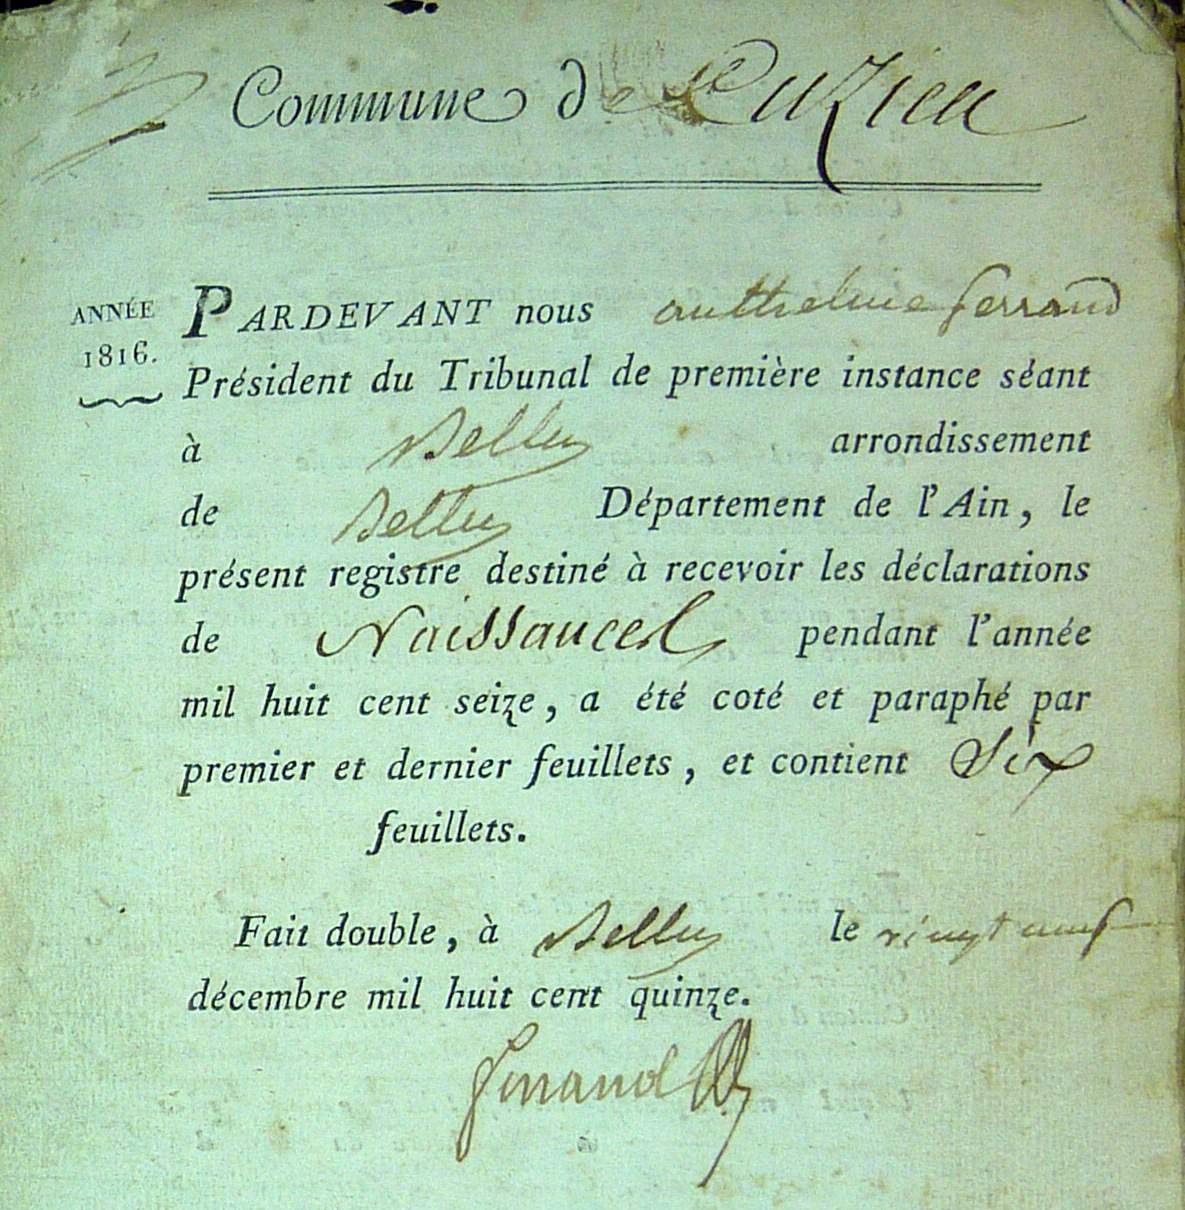 Commune de Cuzieu
ANNÉE
1816.
PARDEVANT nous anthelme ferrand
Président du Tribunal de première instance séant
à Belley arrondissement
de Belley Département de l'Ain, le
présent registre destiné à recevoir les déclarations
de Naissances pendant l'année
mil huit cent seize, a été coté et paraphé par
premier et dernier feuillets, et contient Six
feuillets.
Fait double, à Belley le vingt neuf
décembre mil huit cent quinze.
ferrand